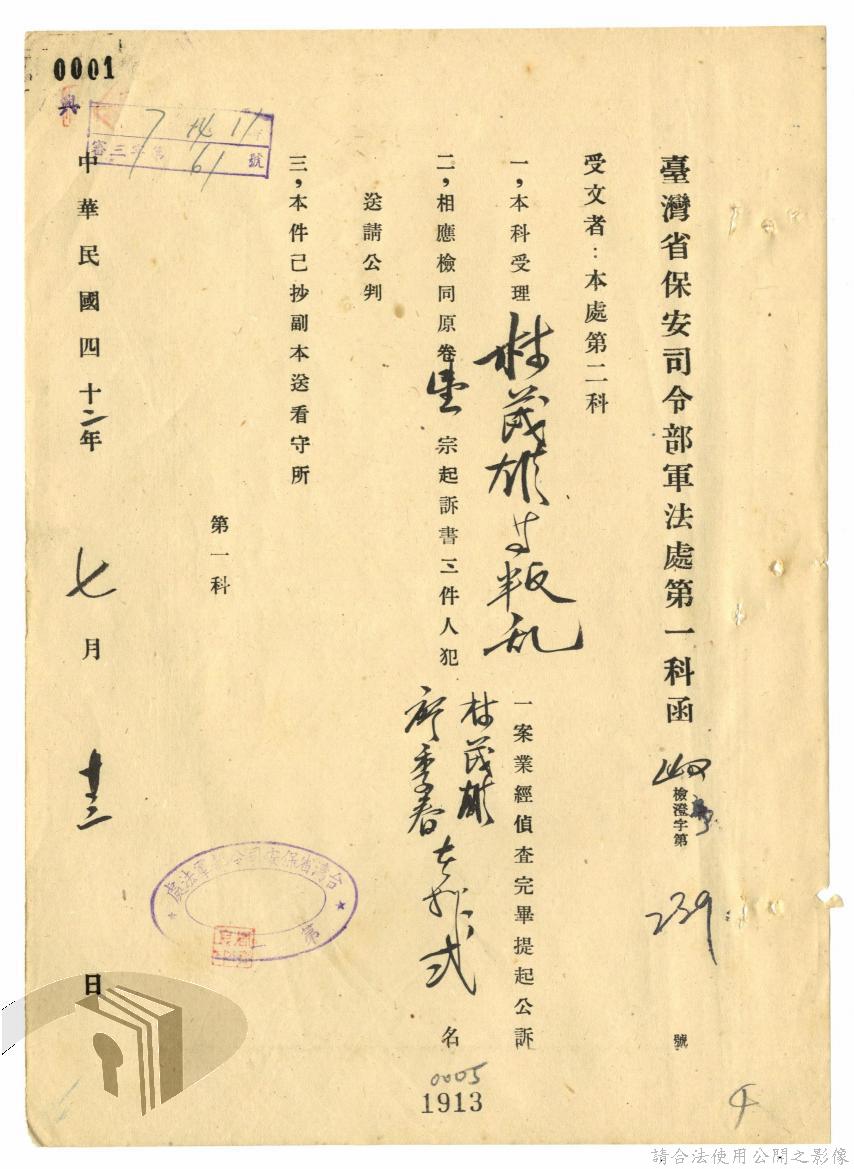 0001
臺灣省保安司令部軍法處第一科函
檢澄字第
239
號
受文者：本處第二科
一，本科受理林茂雄等叛乱一案業經偵查完畢提起公訴
二，相應檢同原卷壹宗起訴書三件人犯林茂雄
廖季春
弍名
送請公判
三，本件已抄副本送看守所
第一科
中華民國四十二年七月十三日
7 14 17
審三字第61號
台灣省保安司令部軍法處
第
0005
1913
請合法使用公開之影像